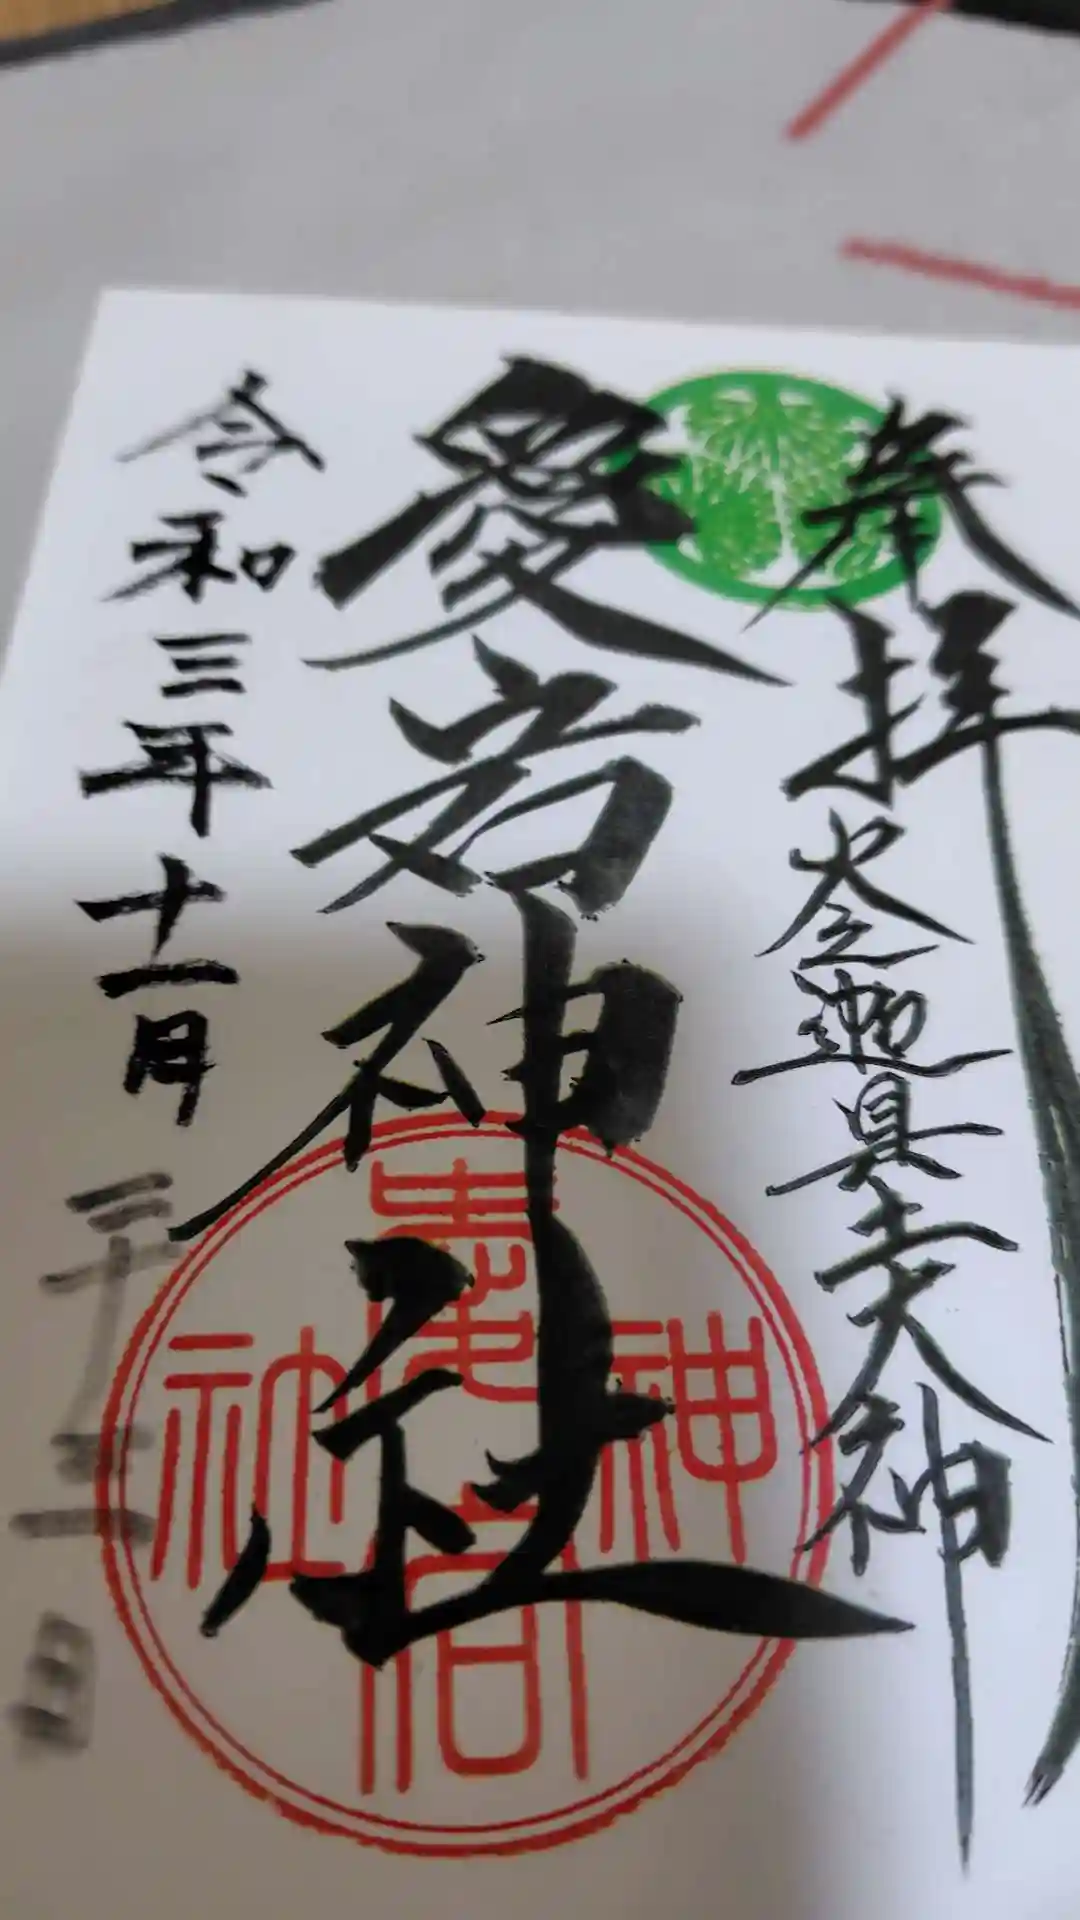 奉拝
火之迦具土大神
愛宕神社
令和三年十一月二十三日
愛宕神社